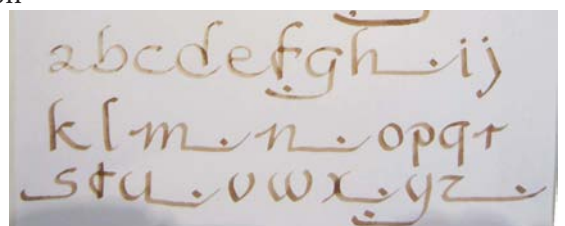 abcdefgh.ij
klm.n.opqr
stu.vwx.yz.